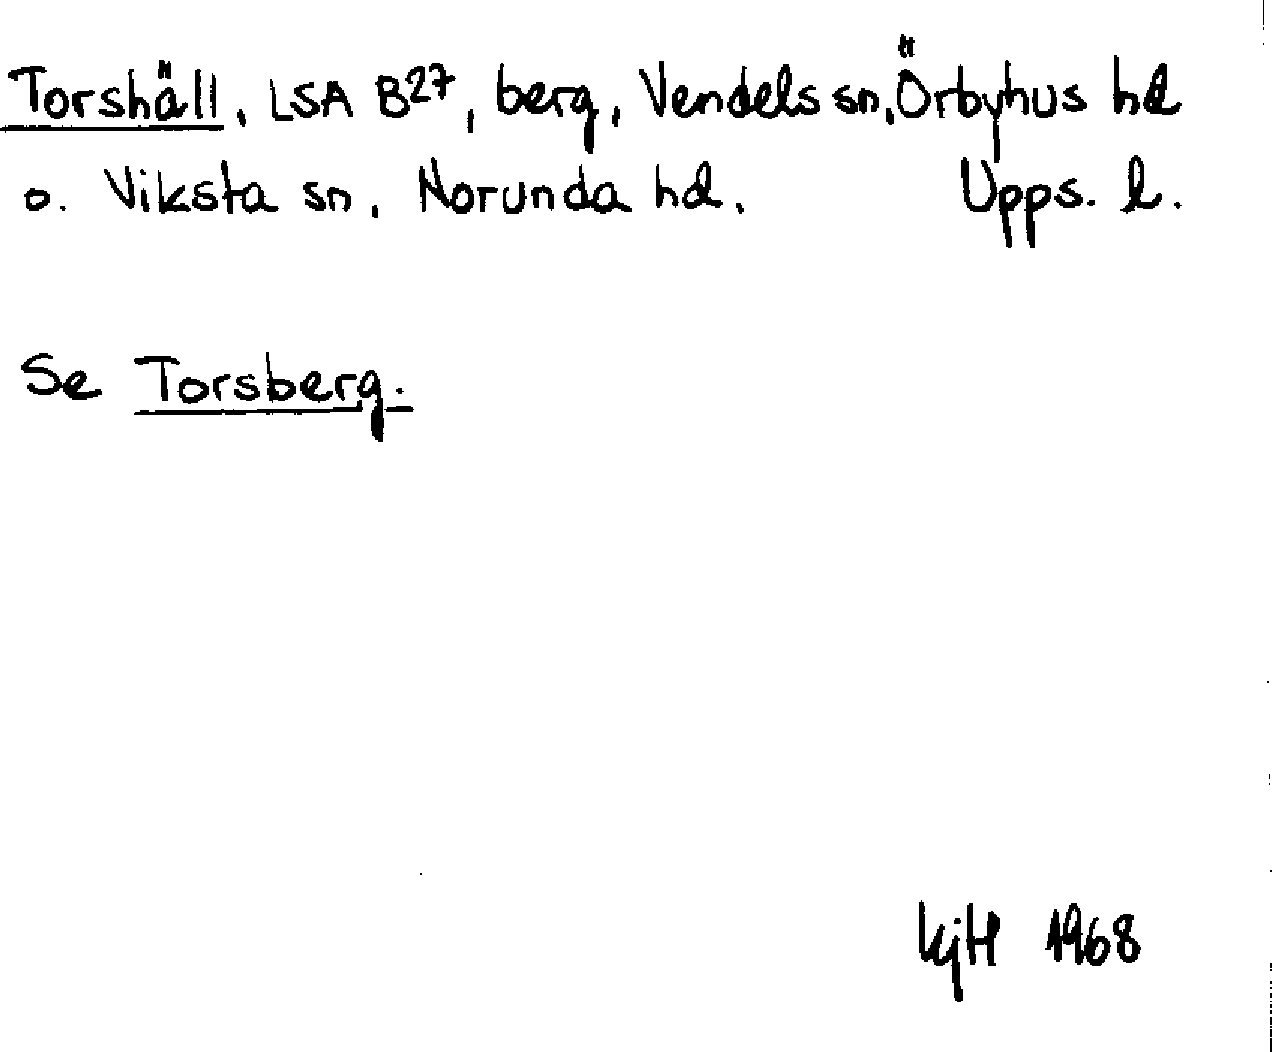 Torshäll, LSA B27, berg, Vendels sn, Örbyhus hd
o. Viksta sn, Norunda hd. Upps. l.
Se Torsberg.
KjH 1968